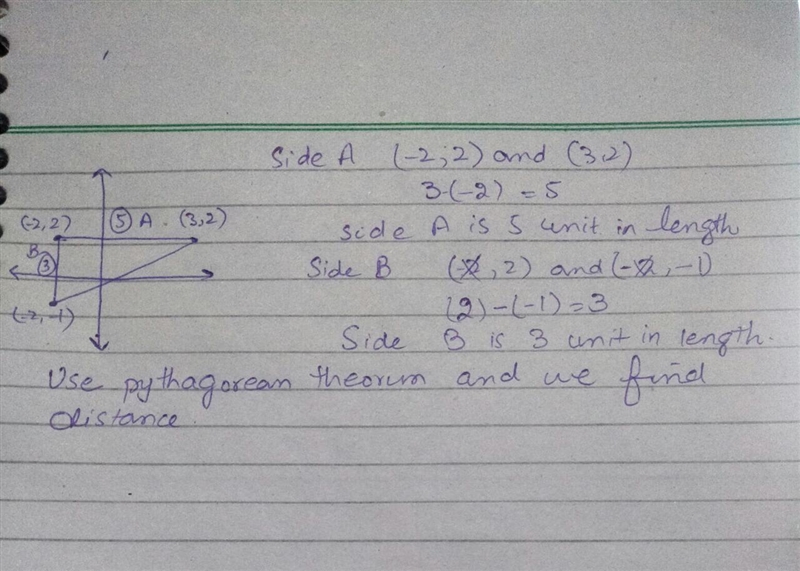 Side A (-2,2) and (3,2)
3-(-2) = 5
(-2,2) ⑤ A . (3,2)
side A is 5 unit in length
B ③
Side B (-2, 2) and (-2, -1)
(-2,-1)
(2)-(-1)=3
Side B is 3 unit in length.
Use pythagorean theorum and we find
distance.